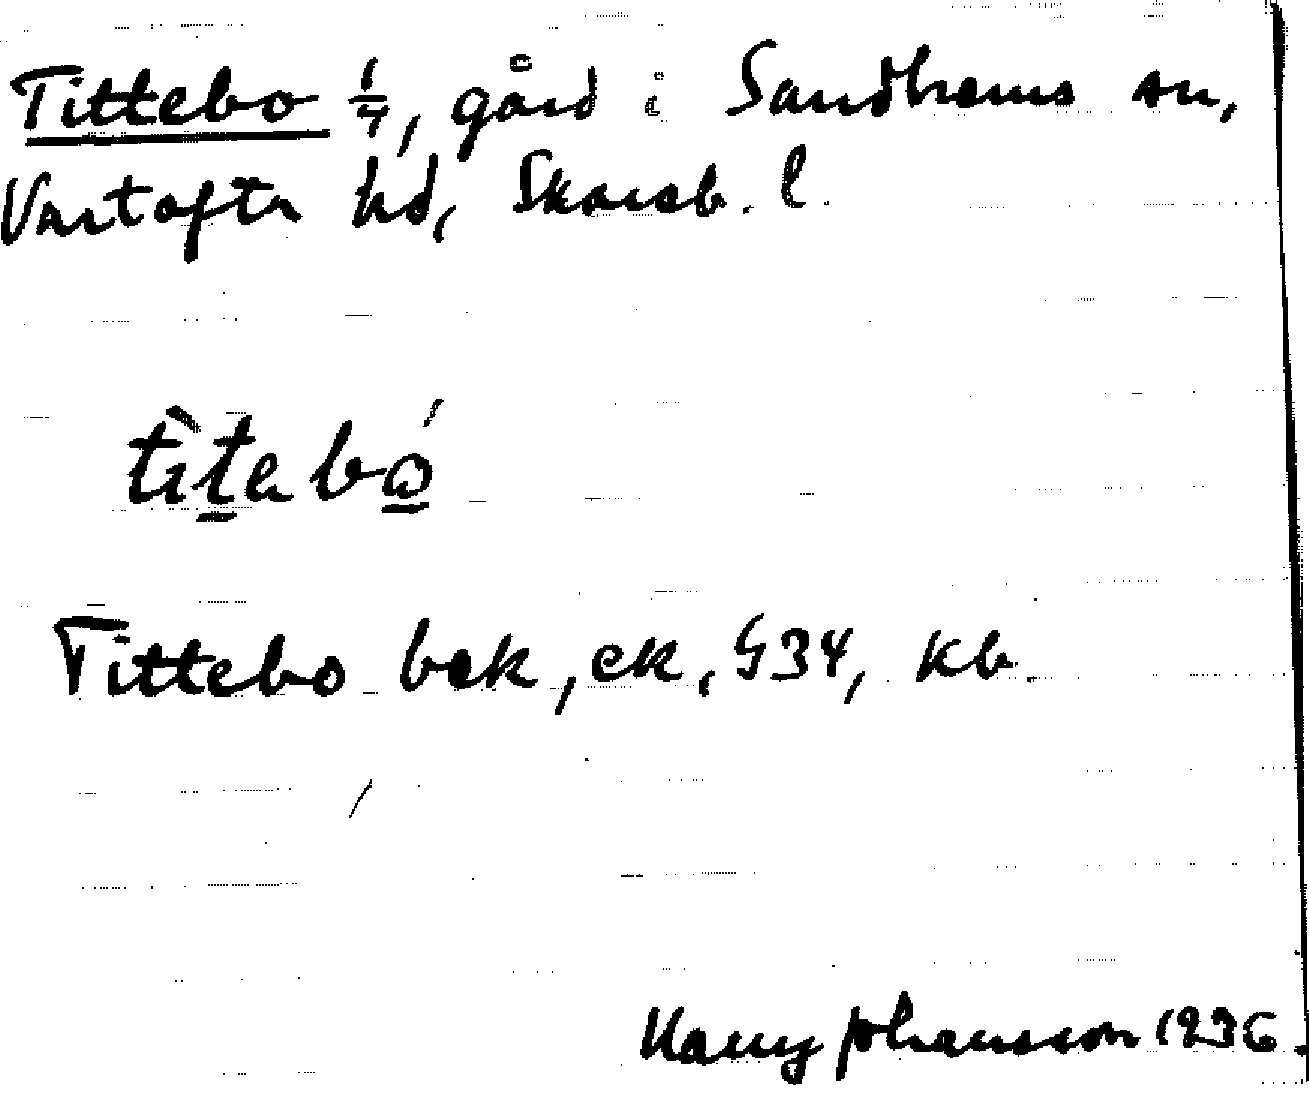 Tittebo 1/4, gård i Sandhems sn,
Vartofta hd, Skarab. l.
tìtebó
Tittebo bek, ek, G34, kb.
Harry Johansson 1936.